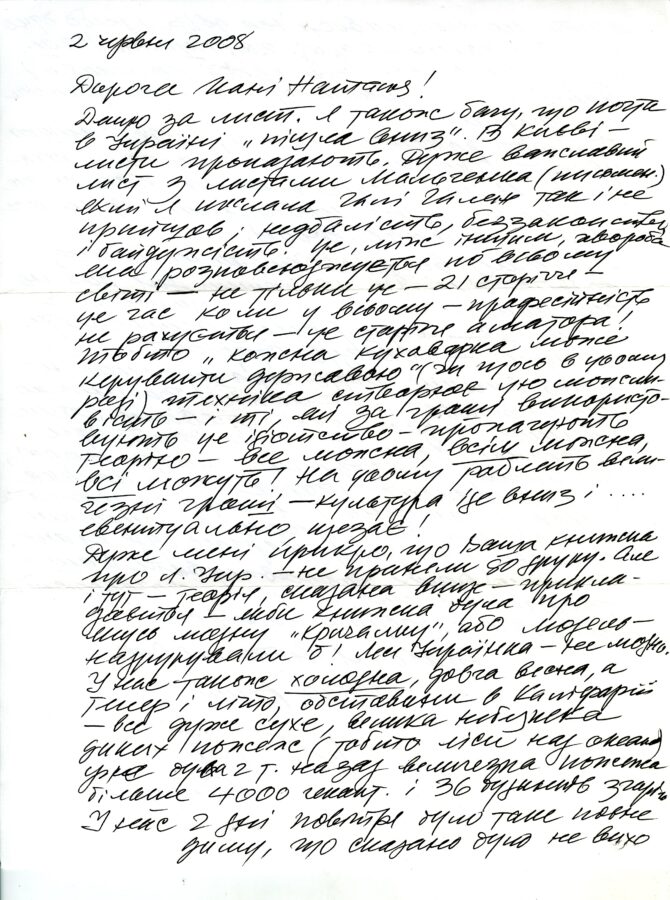 2 червня 2008
Дорога Пані Наталя!
Дякую за лист. Я також бачу, що пошта
в Україні „пішла вниз". В Києві –
листи пропадають. Дуже важливий
лист з листами Мальченка (письмен.)
який я послала Галі так і не
прийшов; недбалість, беззаконність
і байдужість. Це, між іншим, хвороба
яка розповсюджується по всьому
світі – не тільки це – 21 сторіччя –
це час коли у всьому – професійність
не рахується – це старіччя аматора!
Тобито „кожна кухаварка може
керувати державою" (чи щось в цьому
разі) техніка створює цю можли-
вість – і ті, які за гроші використо-
вують це ідіотство – пропагують
теорію – все можна, всім можна,
всі можуть! На цьому роблять вели-
чезні гроші – культура іде вниз і ....
евентуально щезає!
Дуже мені прикро, що Ваша книжка
про Л. Укр. – не прийняли до друку. Але
і тут – теорія, сказана вище – прикла-
дається – якби книжка була про
якусь модну „кричалку", або модель –
надрукували б! Леся Українка – не модно.
У нас також холодна, довга весна, а
тепер і літо, обставини в Каліфорнії
– все дуже сухе, велика небезпека
диких пожеж (тобито ліси над океаном
уже була 2 т. назад величезна пожежа
більше 4000 гект. і 36 будинків згоріло
У нас 2 дні повітря було таке повне
диму, що сказано було не вихо